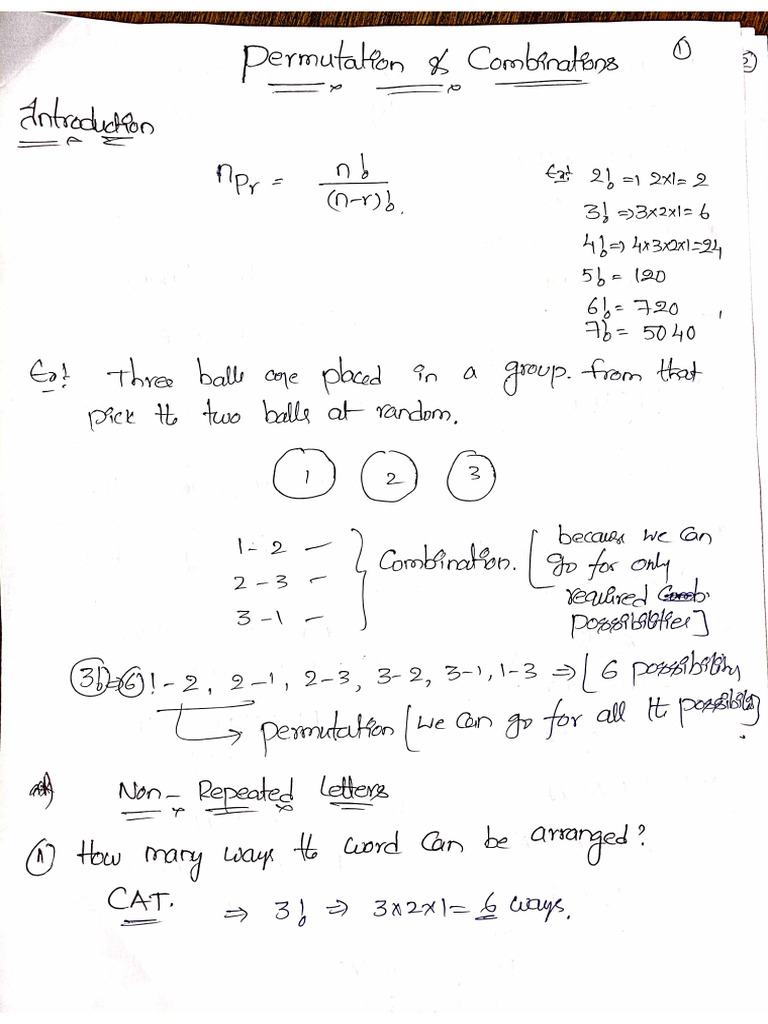 Permutation & Combinations ①
②
Introduction
nPr = n! / (n-r)!.
Ex! 2! =1 2x1= 2
3! => 3x2x1= 6
4! => 4x3x2x1=24
5! = 120
6! = 720
7! = 5040
Ex! Three balls are placed in a group. from that
pick tt two balls at random.
1 2 3
1 - 2 -
2 - 3 -
3 - 1 -
Combination. [because we can
go for only
required
possibilities]
3! => 6 1-2, 2-1, 2-3, 3-2, 3-1, 1-3 => [6 possibility
permutation [we can go for all tt possibility]
Non - Repeated Letters
① How many ways tt word can be arranged?
CAT. => 3! => 3x2x1= 6 ways.